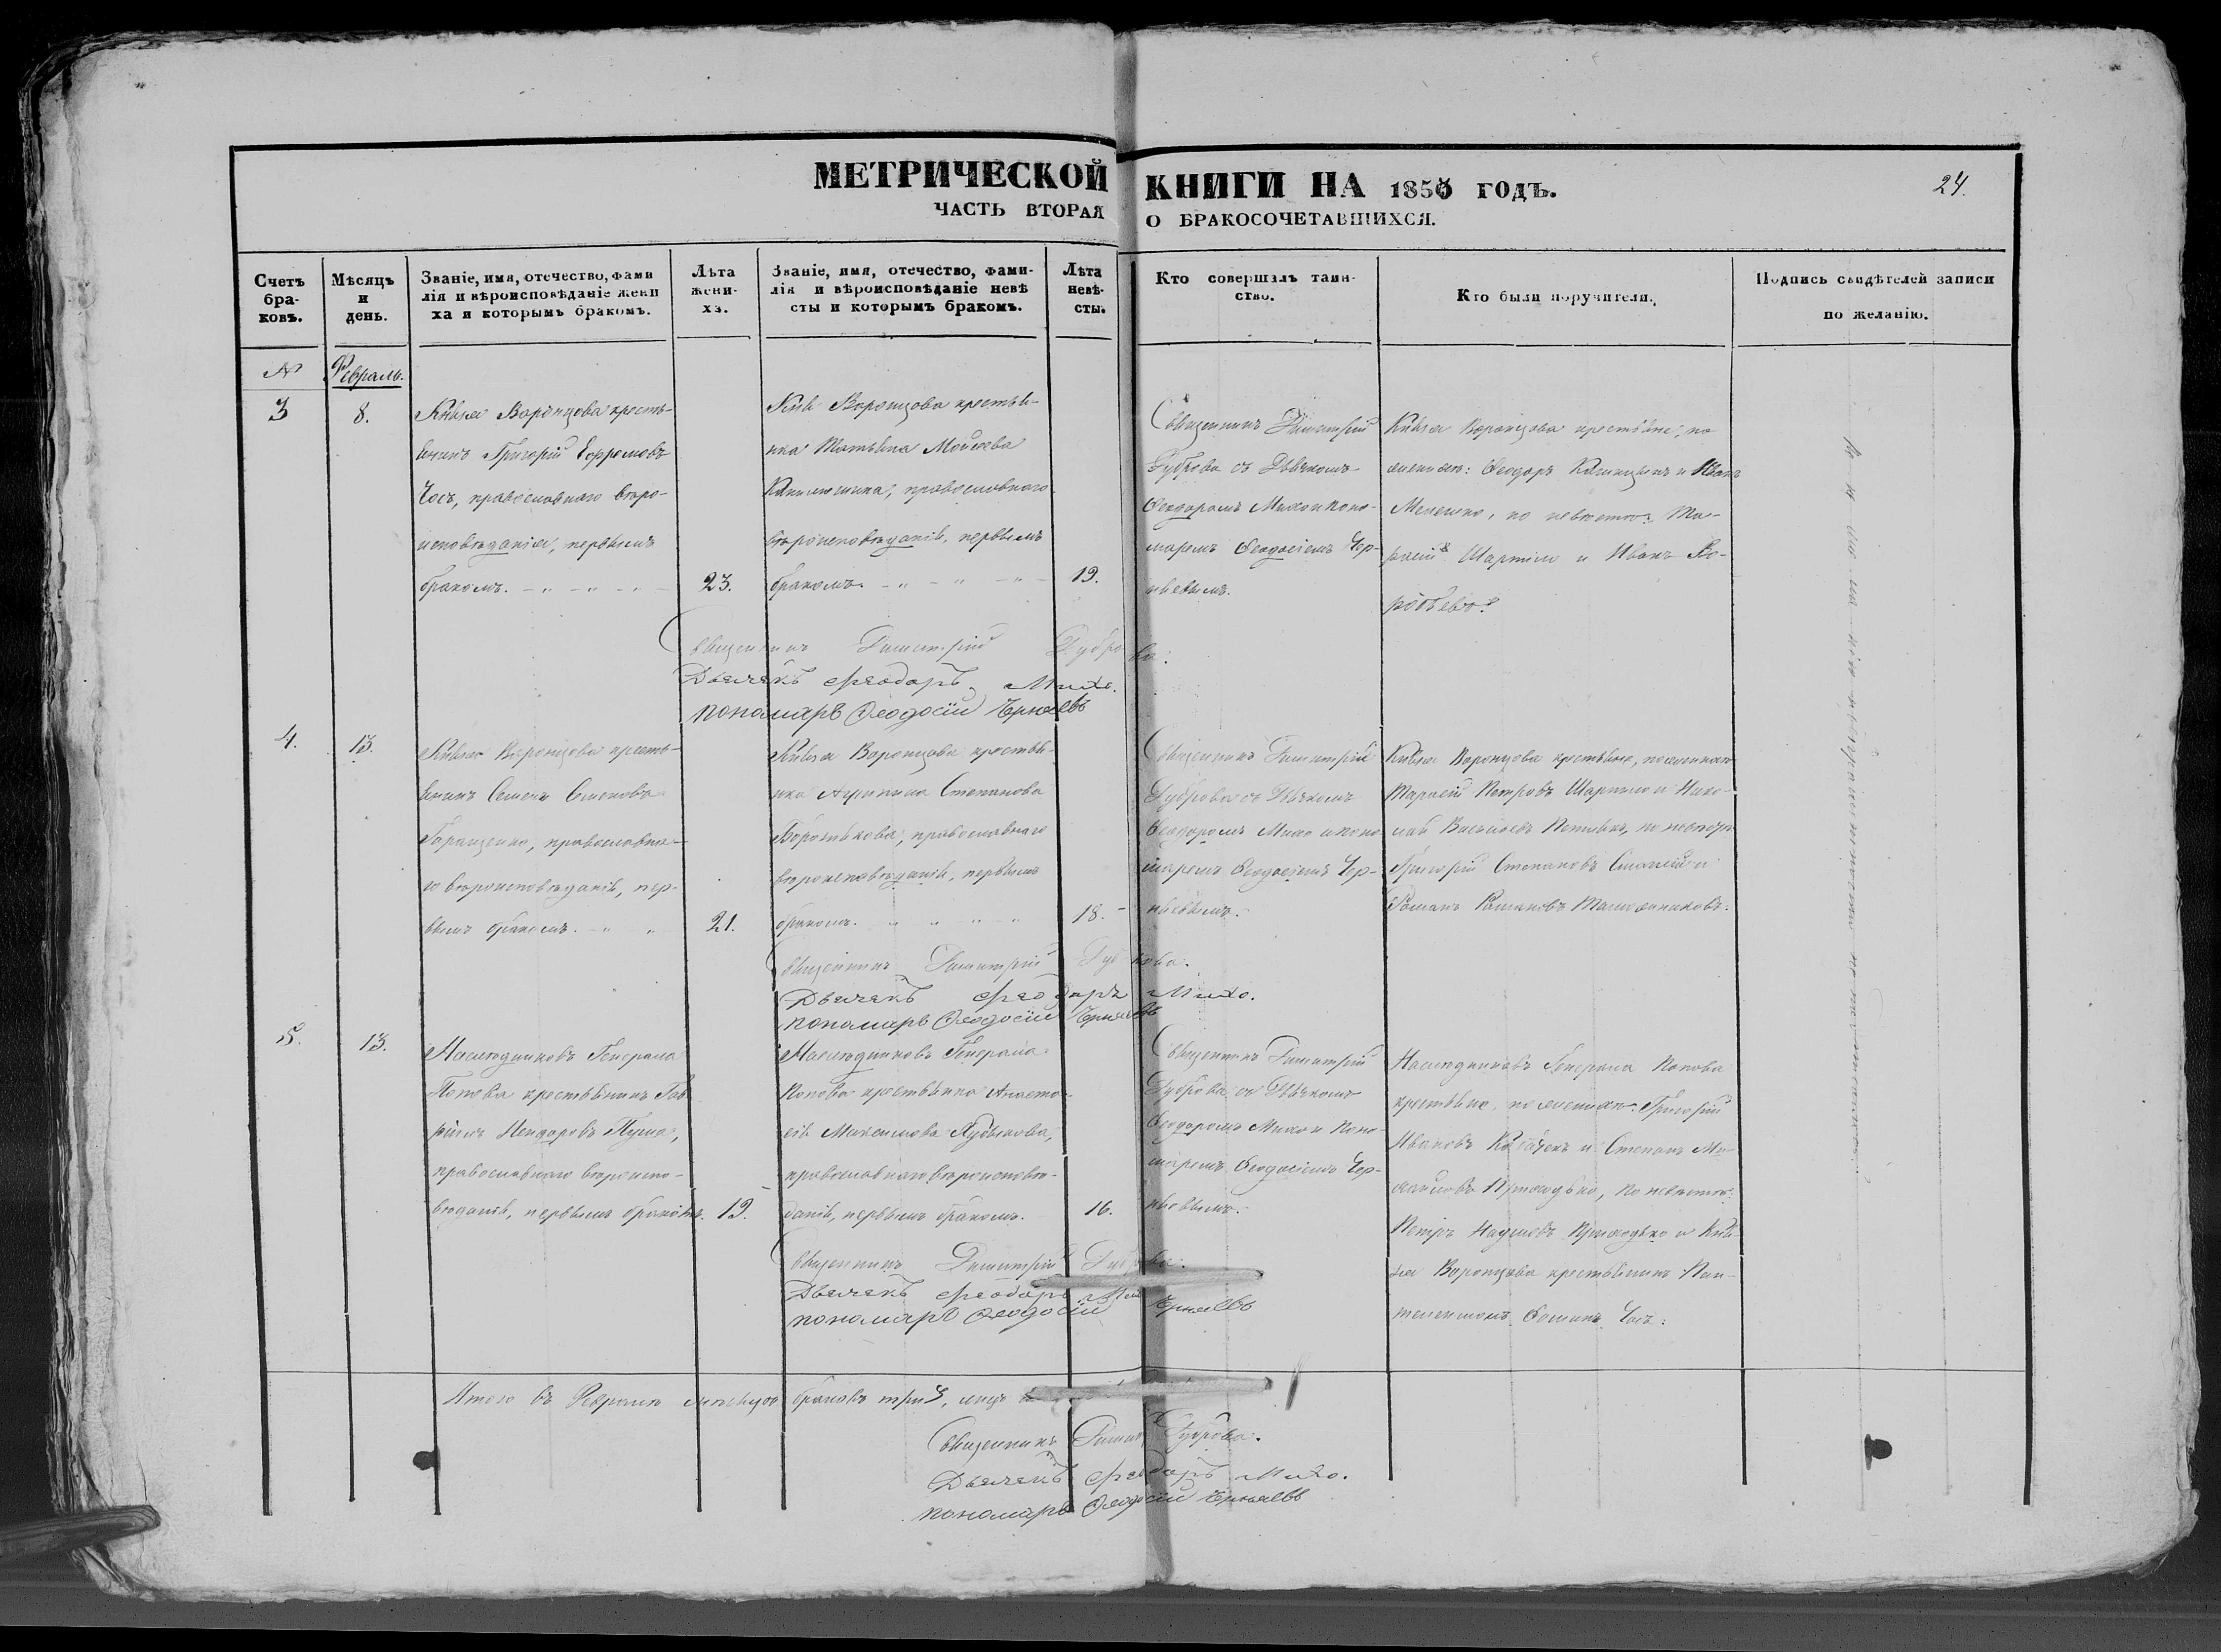 МЕТРИЧЕСКОЙ КНИГИ НА 1856 ГОДЪ.
24.
ЧАСТЬ ВТОРАЯ О БРАКОСОЧЕТАВШИХСЯ.
Счетъ бра-
ковъ.
Мѣсяцъ
и
день.
Званіе, имя, отечество, фами
лія и вѣроисповѣданіе жени
ха и которымъ бракомъ.
Лѣта
жени-
ха.
Званіе, имя, отечество, фами-
лія и вѣроисповѣданіе невѣ
сты и которымъ бракомъ.
Лѣта
невѣ-
сты.
Кто совершалъ таин-
ство.
Кто были поручители.
Подпись свидѣтелей записи
по желанію.
№
Февраль.
3
8.
Князя Воронцова кресть-
янинъ Григорій Ефремовъ
Чосъ, православнаго вѣро-
исповѣданія, первымъ
бракомъ.
23.
Князя Воронцова крестья-
нка Татьяна Моисеева
православнаго
вѣроисповѣданія, первымъ
бракомъ.
19.
Священникъ Димитрій
Дуброва съ Дьячкомъ
Ѳеодоромъ Михо и поно-
маремъ Ѳеодосіемъ Чер-
няевымъ.
Князя Воронцова крестьяне, по
женихѣ: Ѳеодоръ и Иванъ
по невѣстѣ: Та-
расій Шарпило и Иванъ Во-
робьевъ.
Священникъ Димитрій Дуброва.
Дьячекъ Ѳеодоръ Михо.
пономарь Ѳеодосій Черняевъ
4.
13.
Князя Воронцова кресть-
янинъ Семенъ Семеновъ
православна-
го вѣроисповѣданія, пер-
вымъ бракомъ.
21.
Князя Воронцова крестья-
нка Степанова
православнаго
вѣроисповѣданія, первымъ
бракомъ.
18.
Священникъ Димитрій
Дуброва съ Дьячкомъ
Ѳеодоромъ Михо и поно-
маремъ Ѳеодосіемъ Чер-
няевымъ.
Князя Воронцова крестьяне, по женихѣ
Тарасій Петровъ Шарпило и Нико-
лай Васильевъ по невѣстѣ
Григорій Степановъ и
Романъ Романовъ
Священникъ Димитрій Дуброва.
Дьячекъ Ѳеодоръ Михо.
пономарь Ѳеодосій Черняевъ
5.
13.
Наслѣдниковъ Генерала
Попова крестьянинъ Гав-
православнаго вѣроиспо-
вѣданія, первымъ бракомъ.
19.
Наслѣдниковъ Генерала
Попова крестьянка Анаста-
сія Максимова
православнаго вѣроисповѣ-
данія, первымъ бракомъ.
16.
Священникъ Димитрій
Дуброва съ Дьячкомъ
Ѳеодоромъ Михо и поно-
маремъ Ѳеодосіемъ Чер-
няевымъ.
Наслѣдниковъ Генерала Попова
крестьяне, по женихѣ: Григорій
Ивановъ и Степанъ Ми-
хайловъ Приходько, по невѣстѣ:
Петръ Наумовъ Приходько и Кня-
зя Воронцова крестьянинъ Пан-
телеимонъ Ѳоминъ Чосъ.
Священникъ Димитрій Дуброва.
Дьячекъ Ѳеодоръ
пономарь Ѳеодосій Черняевъ
Итого въ Февралѣ мѣсяцѣ браковъ три 3, лицъ
Священникъ Димитрій Дуброва.
Дьячекъ Ѳеодоръ Михо.
пономарь Ѳеодосій Черняевъ